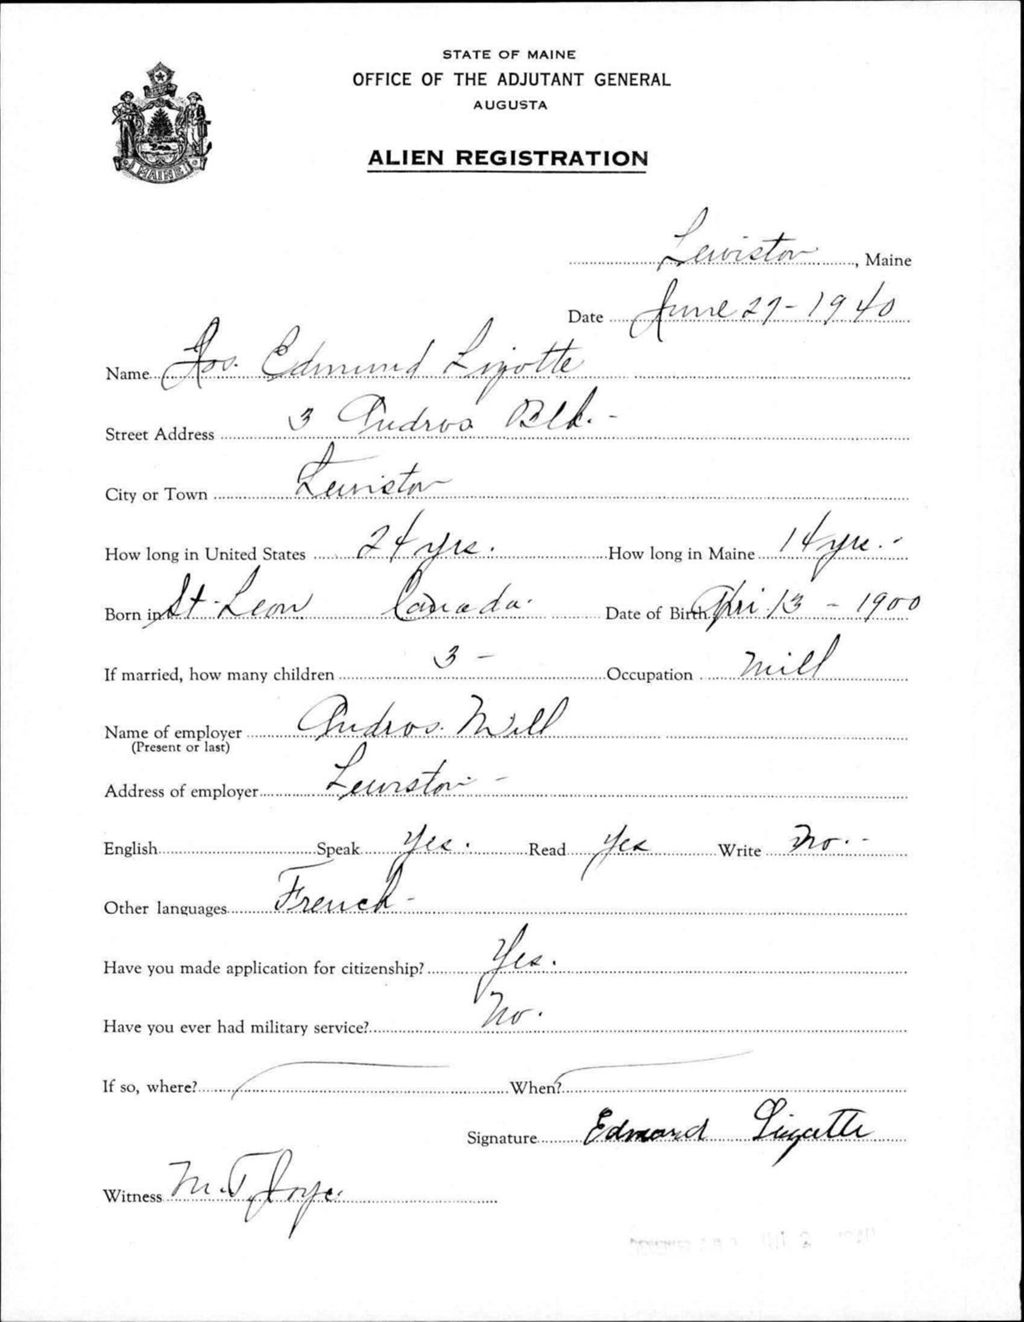 STATE OF MAINE
OFFICE OF THE ADJUTANT GENERAL
AUGUSTA
MAINE
ALIEN REGISTRATION
Lewiston, Maine
Date June 27-1940
Name Jos. Edmund Lizotte
Street Address 3 Andros Blk.-
City or Town Lewiston
How long in United States 24 yrs. How long in Maine 14 yrs.-
Born in St-Leon Canada. Date of Birth Apri.13-1900
If married, how many children 3- Occupation Mill
Name of employer Andros. Mill
(Present or last)
Address of employer Lewiston-
English Speak Yes. Read Yes Write No.-
Other languages French-
Have you made application for citizenship? Yes.
Have you ever had military service? No.
If so, where? When?
Signature Edmond Lizotte
Witness M.T. Joyce